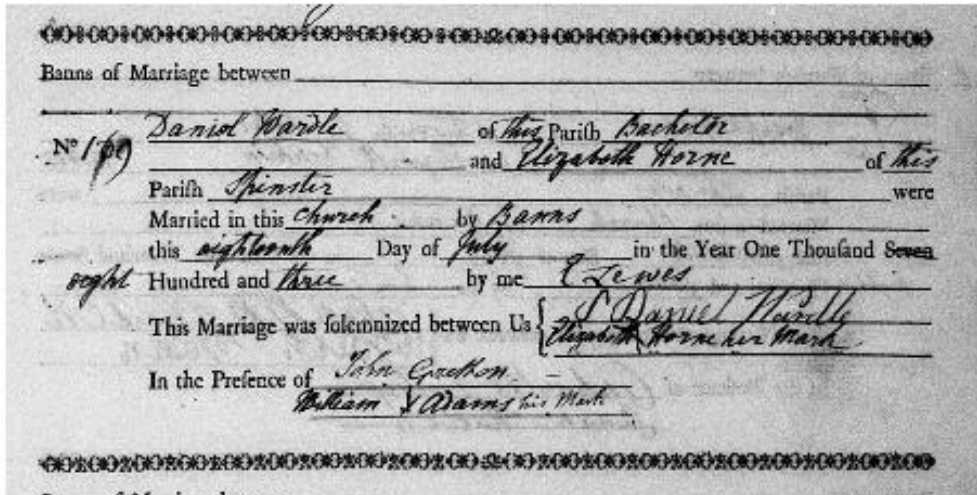 Banns of Marriage between
Nº 169 Daniel Wardle of this Pariſh Bachelor
and Elizabeth Horne of this
Pariſh Spinster were
Married in this Church by Banns
this eighteenth Day of July in the Year One Thouſand Seven
eight Hundred and three by me E Lewes
This Marriage was ſolemnized between Us { Daniel Wardle
Elizabeth Horne her Mark
In the Preſence of John
William X Adams his Mark